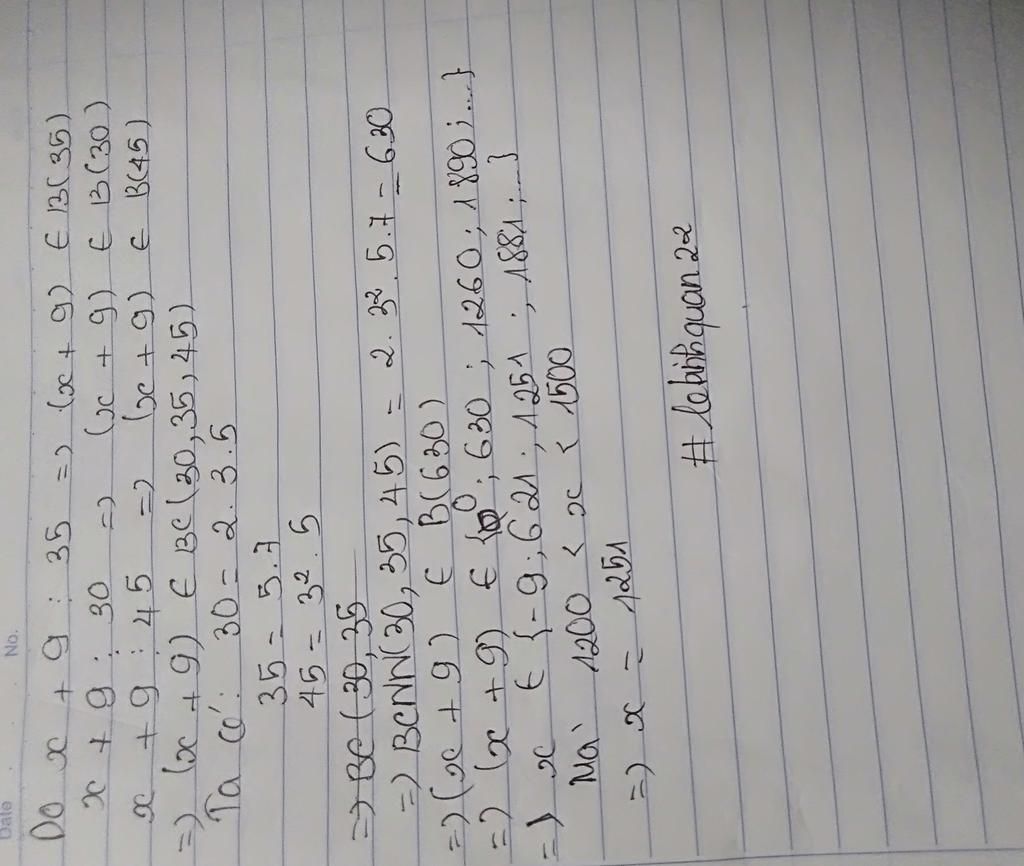 Date No.
Do x + 9 ⋮ 35 => (x + 9) ∈ B(35)
x + 9 ⋮ 30 => (x + 9) ∈ B(30)
x + 9 ⋮ 45 => (x + 9) ∈ B(45)
=> (x + 9) ∈ BC(30, 35, 45)
Ta có: 30 = 2 . 3 . 5
35 = 5 . 7
45 = 3² . 5
=> BC(30, 35
=> BCNN(30, 35, 45) = 2 . 3² . 5 . 7 = 630
=> (x + 9) ∈ B(630)
=> (x + 9) ∈ {0 ; 630 ; 1260 ; 1890 ; ...}
=> x ∈ {-9 ; 621 ; 1251 ; 1881 ; ...}
Mà 1200 < x < 1500
=> x = 1251
# lebinhquan22